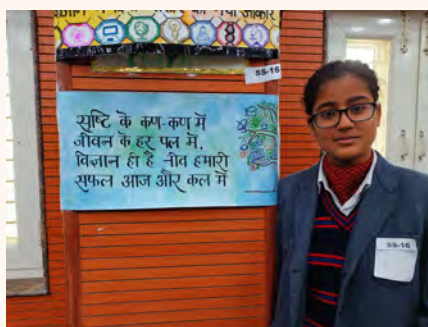 SS-16
सृष्टि के कण-कण में
जीवन के हर पल में,
विज्ञान ही है नींव हमारी
सफल आज और कल में
SS-16